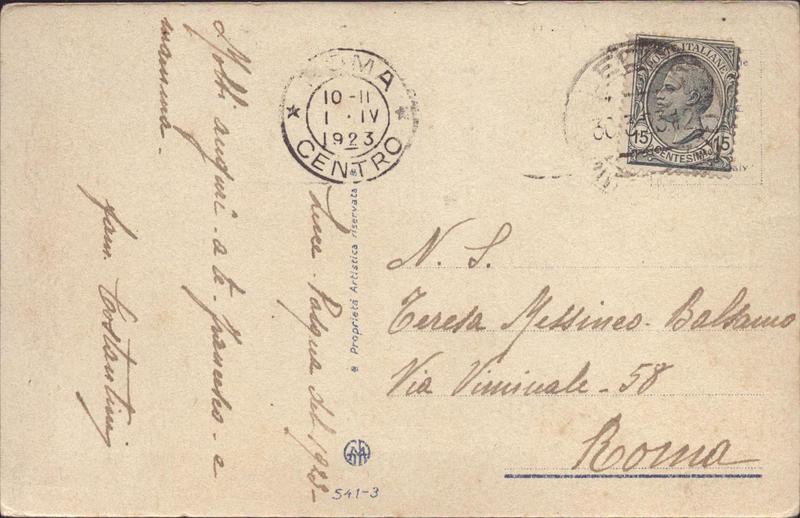 ROMA
10-11
1 · IV
1923
CENTRO
POSTE ITALIANE
15 CENTESIMI 15
Pasqua del 1923-
Molti auguri - a te - - e
mamma -
fam. Costantini
Proprietà Artistica riservata
541-3
N. S.
Teresa Messineo - Balsamo
Via Viminale - 58
Roma